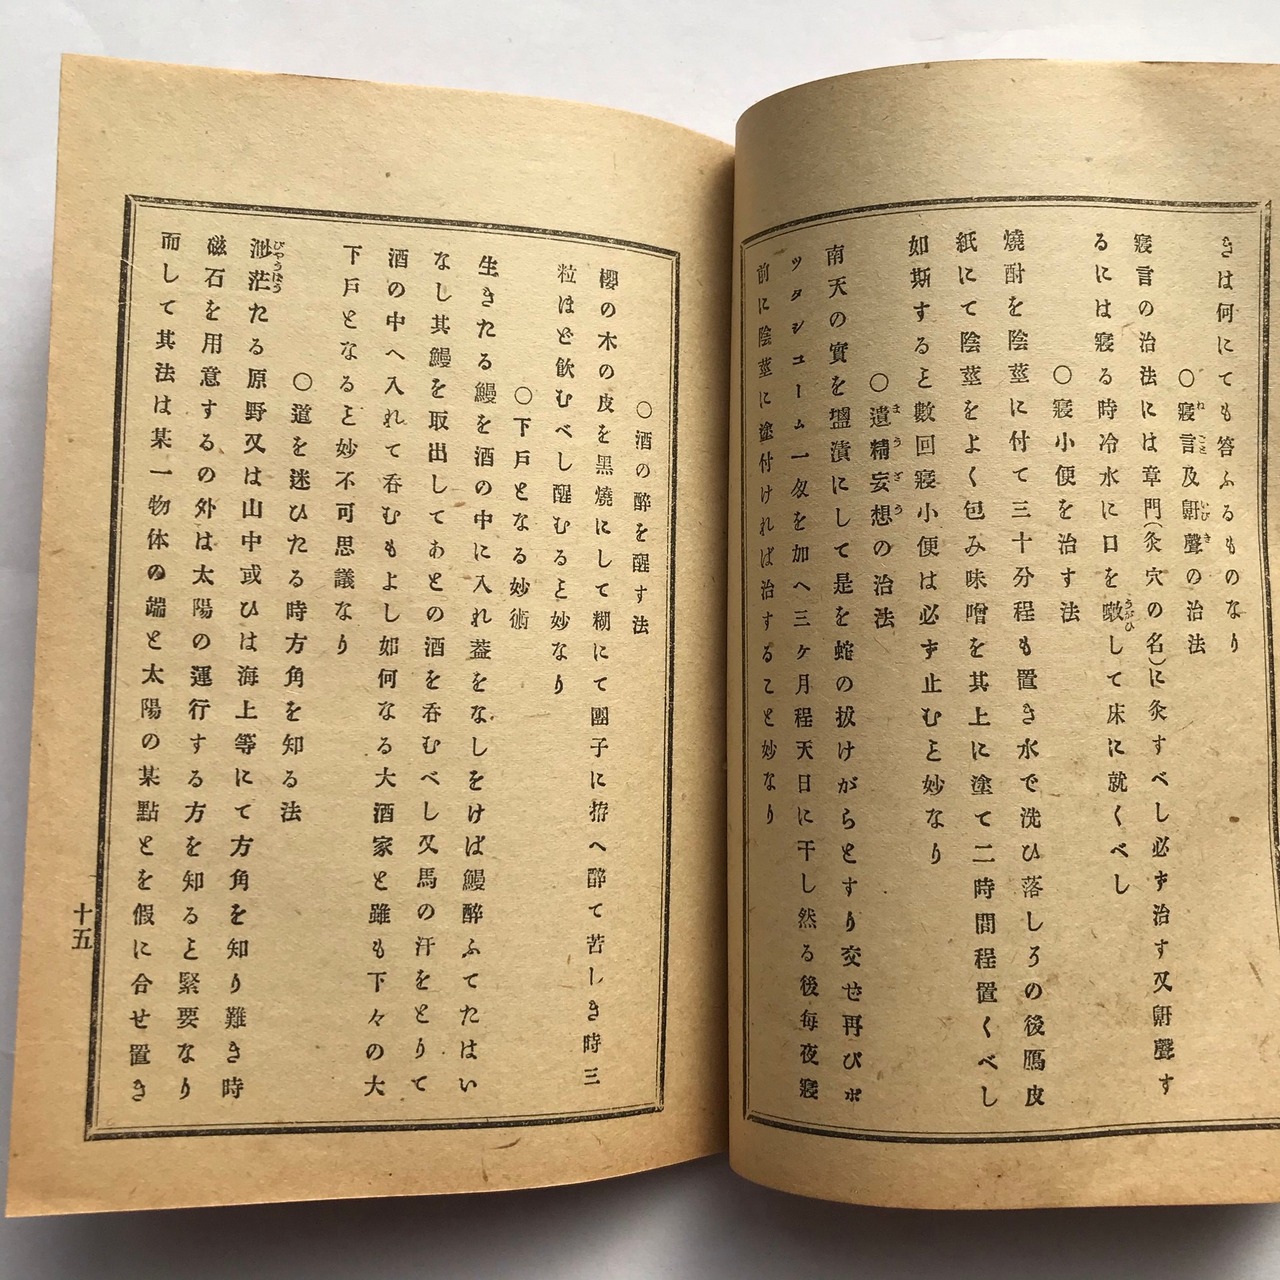 きは何にても答ふるものなり
○寢言及鼾聲の治法
ねごと いびき
寢言の治法には章門(灸穴の名)に灸すべし必ず治す又鼾聲す
るには寢る時冷水に口を嗽して床に就くべし
うがひ
○寢小便を治す法
燒酎を陰莖に付て三十分程も置き水で洗ひ落しろの後鴈皮
紙にて陰莖をよく包み味噌を其上に塗て二時間程置くべし
如斯すると數回寢小便は必ず止むと妙なり
○遺精妄想の治法
まうざう
南天の實を鹽漬にして是を蛇の拔けがらとすり交せ再びポ
ツタシユーム一匁を加へ三ケ月程天日に干し然る後每夜寢
前に陰莖に塗付ければ治すること妙なり
○酒の醉を醒す法
櫻の木の皮を黑燒にして糊にて團子に拵へ醉て苦しき時三
粒ほど飮むべし醒むると妙なり
○下戸となる妙術
生きたる鰻を酒の中に入れ蓋をなしをけば鰻醉ふてたはい
なし其鰻を取出してあとの酒を呑むべし又馬の汗をとりて
酒の中へ入れて呑むもよし如何なる大酒家と雖も下々の大
下戸となると妙不可思議なり
○道を迷ひたる時方角を知る法
渺茫たる原野又は山中或ひは海上等にて方角を知り難き時
びやうばう
磁石を用意するの外は太陽の運行する方を知ると緊要なり
而して其法は某一物体の端と太陽の某點とを假に合せ置き
十五